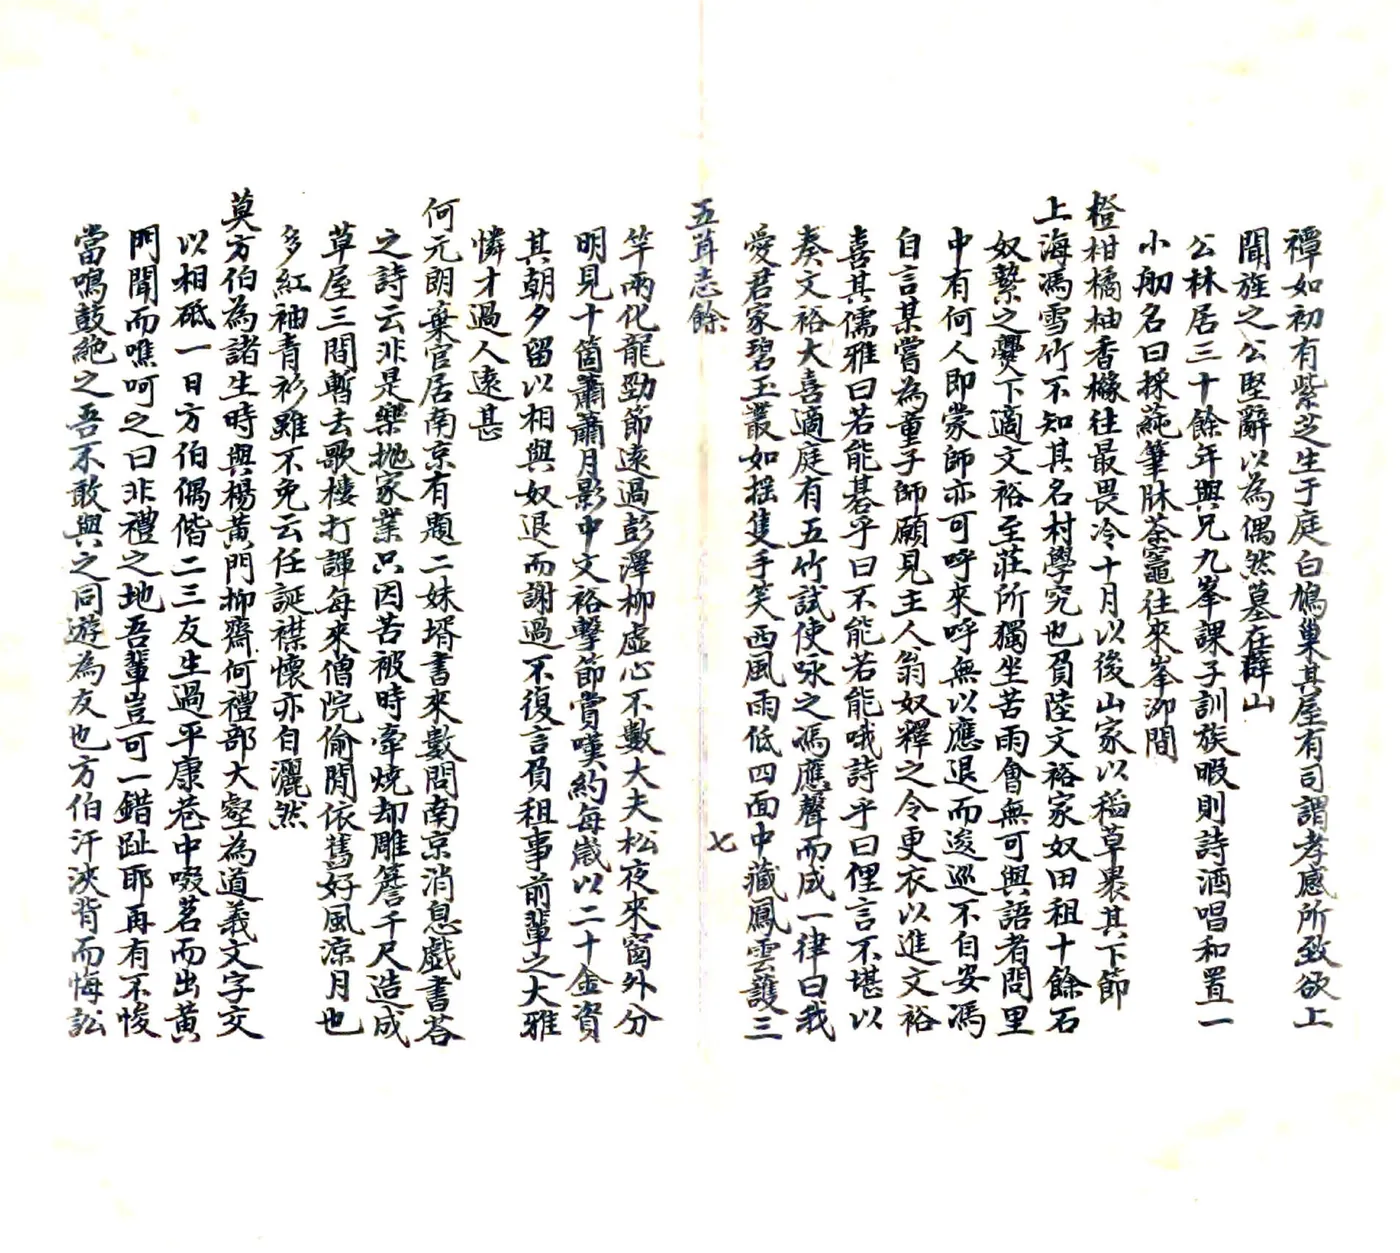 禫如初有紫芝生于庭白鳩巢其屋有司謂孝感所致欲上
聞旌之公堅辭以為偶然墓在薛山
公林居三十餘年與兄九峯課子訓族暇則詩酒唱和置一
小舠名曰採蒓筆牀茶竈往來峯泖間
橙柑橘柚香櫞往最畏冷十月以後山家以稻草裹其下節
上海馮雪竹不知其名村學究也負陸文裕家奴田租十餘石
奴縶之爨下適文裕至莊所獨坐苦雨會無可與語者問里
中有何人即蒙師亦可呼來呼無以應退而逡巡不自安馮
自言某嘗為童子師願見主人翁奴釋之令更衣以進文裕
喜其儒雅曰若能碁乎曰不能若能哦詩乎曰俚言不堪以
奏文裕大喜適庭有五竹試使咏之馮應聲而成一律曰我
愛君家碧玉叢如摇隻手笑西風雨低四面中藏鳳雲護三
五茸志餘
七
竿兩化龍勁節遠過彭澤柳虛心不數大夫松夜來窗外分
明見十箇蕭蕭月影中文裕擊節賞嘆約每歲以二十金資
其朝夕留以相與奴退而謝過不復言負租事前輩之大雅
憐才過人遠甚
何元朗棄官居南京有題二妹壻書來數問南京消息戲書荅
之詩云非是樂拋家業只因苦被時牽燒却雕簷千尺造成
草屋三間暫去歌樓打諢每來僧院偷閒依舊好風涼月也
多紅袖青衫雖不免云任誕襟懷亦自灑然
莫方伯為諸生時與楊黃門抑齋何禮部大壑為道義文字交
以相砥一日方伯偶偕二三友生過平康巷中啜茗而出黃
門聞而噍呵之曰非禮之地吾輩豈可一錯趾耶再有不悛
當鳴鼓絶之吾不敢與之同遊為友也方伯汗浹背而悔訟